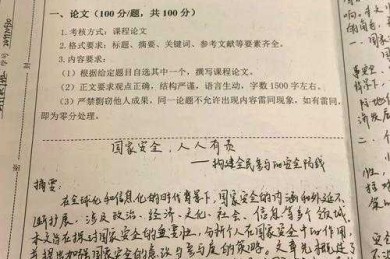 一、论文（100分/题，共100分）
1.考核方式：课程论文
2.格式要求：标题、摘要、关键词、参考文献等要素齐全。
3.内容要求：
（1）根据给定题目自选其中一个，撰写课程论文。
（2）正文要求观点正确，结构严谨，语言生动，字数1500字左右。
（3）严禁剽窃他人成果，同一论题不允许出现内容雷同现象，如有雷同，
即为零分处理。
国家安全，人人有责
——构建全民参与的安全防线
摘要：
在全球化和信息化的时代背景下，国家安全的内涵和外延不
断扩展，涉及政治、经济、文化、社会、信息等多个领域
本文旨在探讨国家安全的重要性，分析个人在国家安全中的作用，
并提出加强国家安全的意识与参与度的策略。文章先概述了